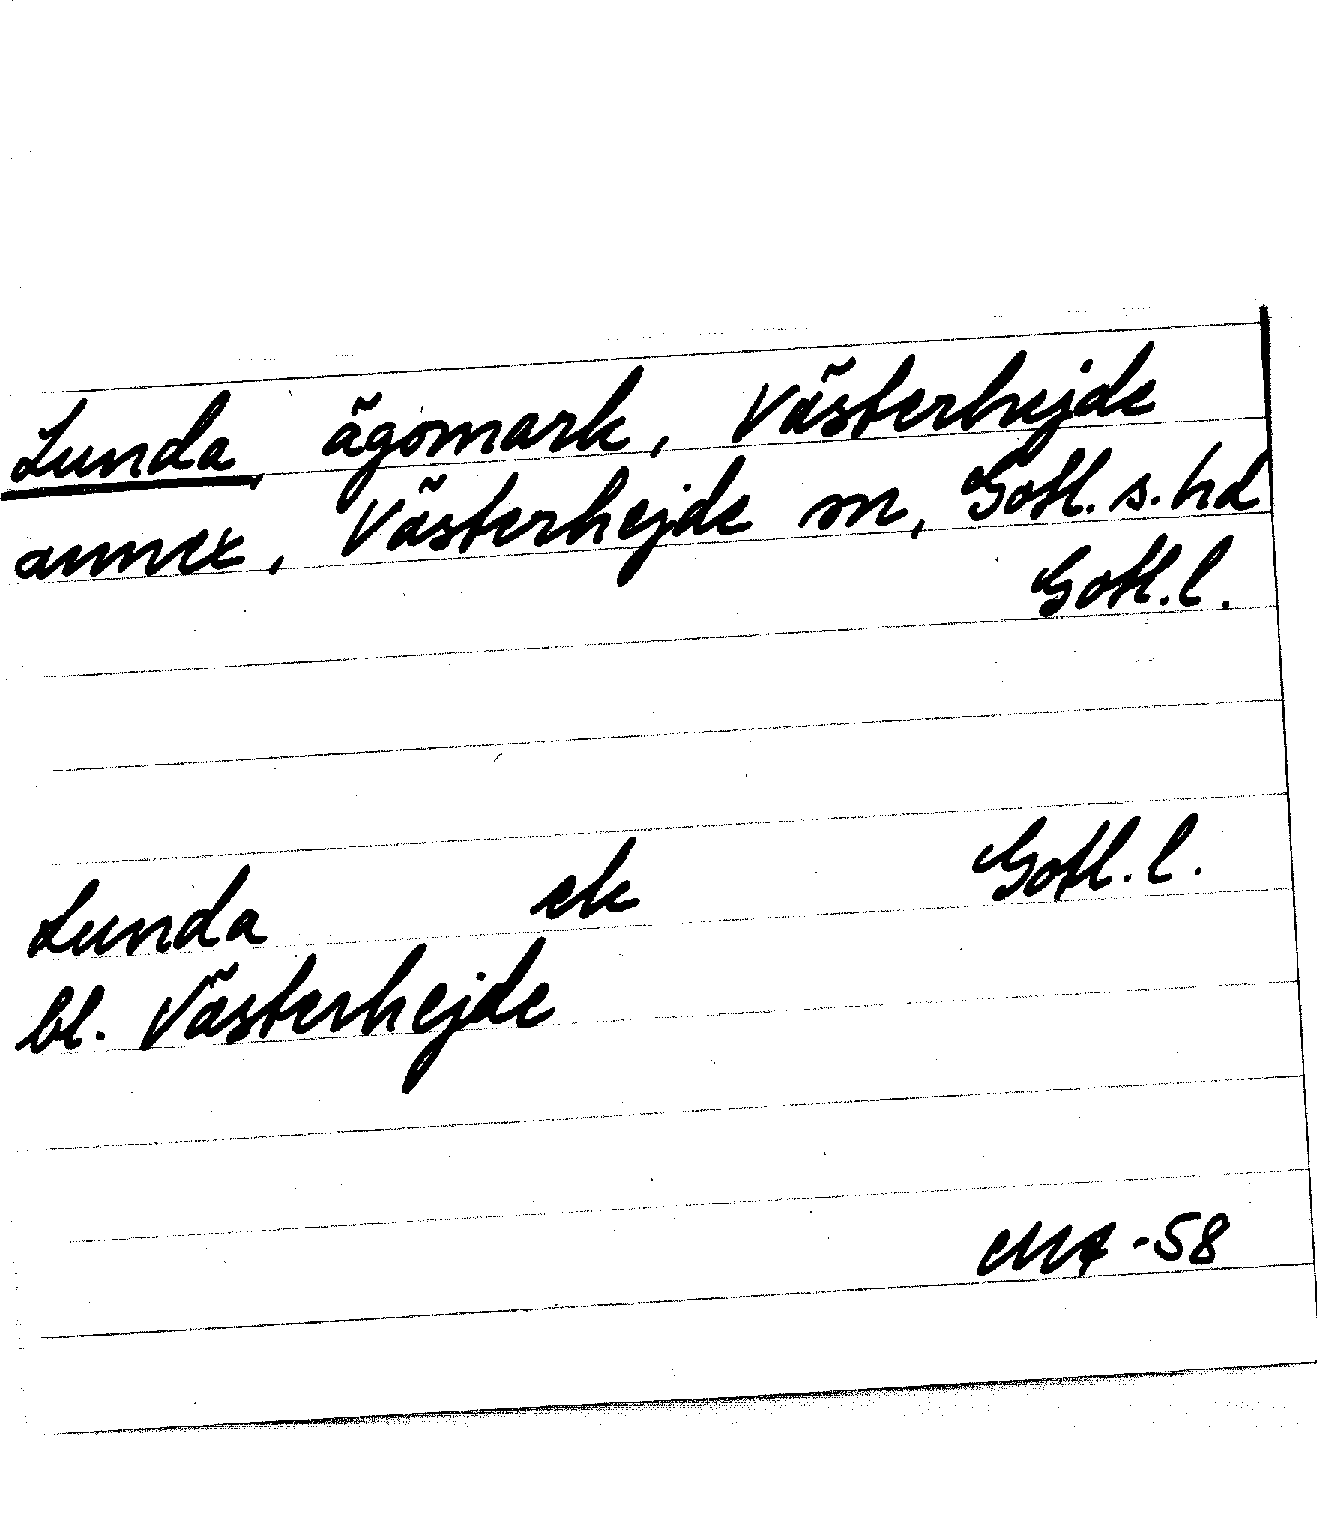 Lunda, ägomark, Västerhejde
annex, Västerhejde sn, Gotl. s. hd
Gotl. l.
Lunda ek Gotl. l.
bl. Västerhejde
-58